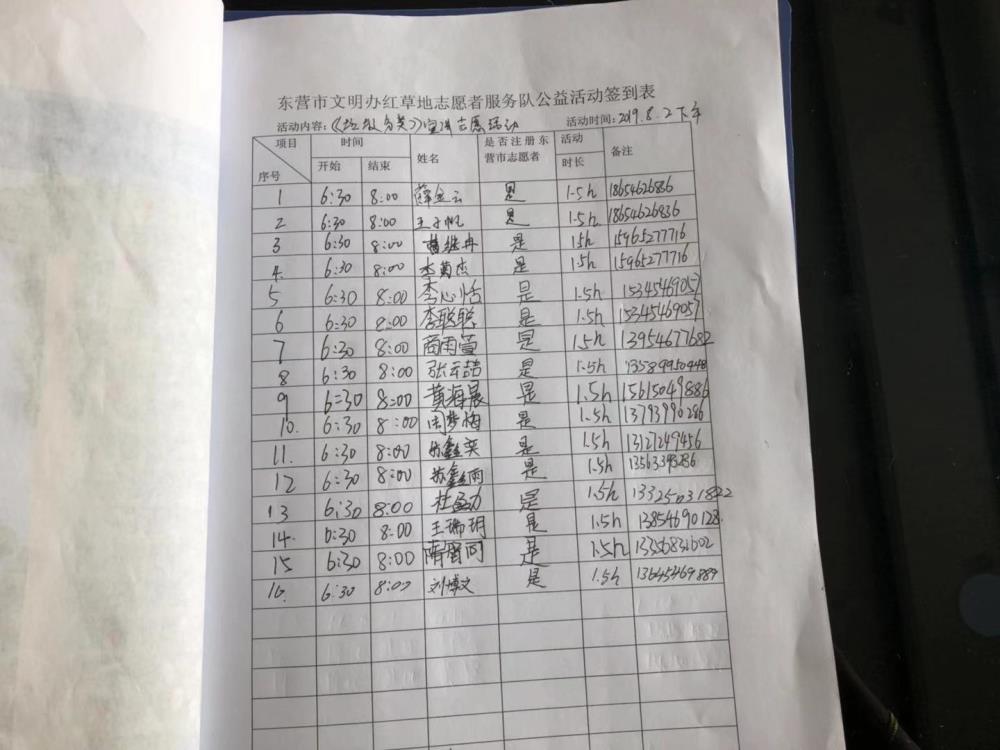 东营市文明办红草地志愿者服务队公益活动签到表
活动内容：《垃圾分类》宣讲志愿活动 活动时间：2019.8.2下午
项目 时间 姓名 是否注册东营市志愿者 活动时长 备注
序号 开始 结束
1 6:30 8:00 薛金云 是 1.5h 18654626836
2 6:30 8:00 王子帆 是 1.5h 18654626836
3 6:30 8:00 是 15h 15965277716
4. 6:30 8:00 李菊杰 是 1.5h 15965277716
5 6:30 8:00 李心恬 是 1.5h 15345469057
6 6:30 8:00 李聪聪 是 1.5h 15345469057
7 6:30 8:00 商雨萱 是 1.5h 13954677682
8 6:30 8:00 张云喆 是 1.5h
9 6:30 8:00 黄海晨 是 1.5h 15615049886
10. 6:30 8:00 是 1.5h 13793990286
11. 6:30 8:00 苏鑫奕 是 1.5h 13127249456
12 6:30 8:00 苏鑫雨 是 1.5h 13563393286
13 6:30 8:00 杜孟力 是 1.5h 13325031822
14. 6:30 8:00 王瑞玥 是 1.5h 13854690128
15 6:30 8:00 是 1.5h 13356831602
16. 6:30 8:00 刘博文 是 1.5h 13645469889